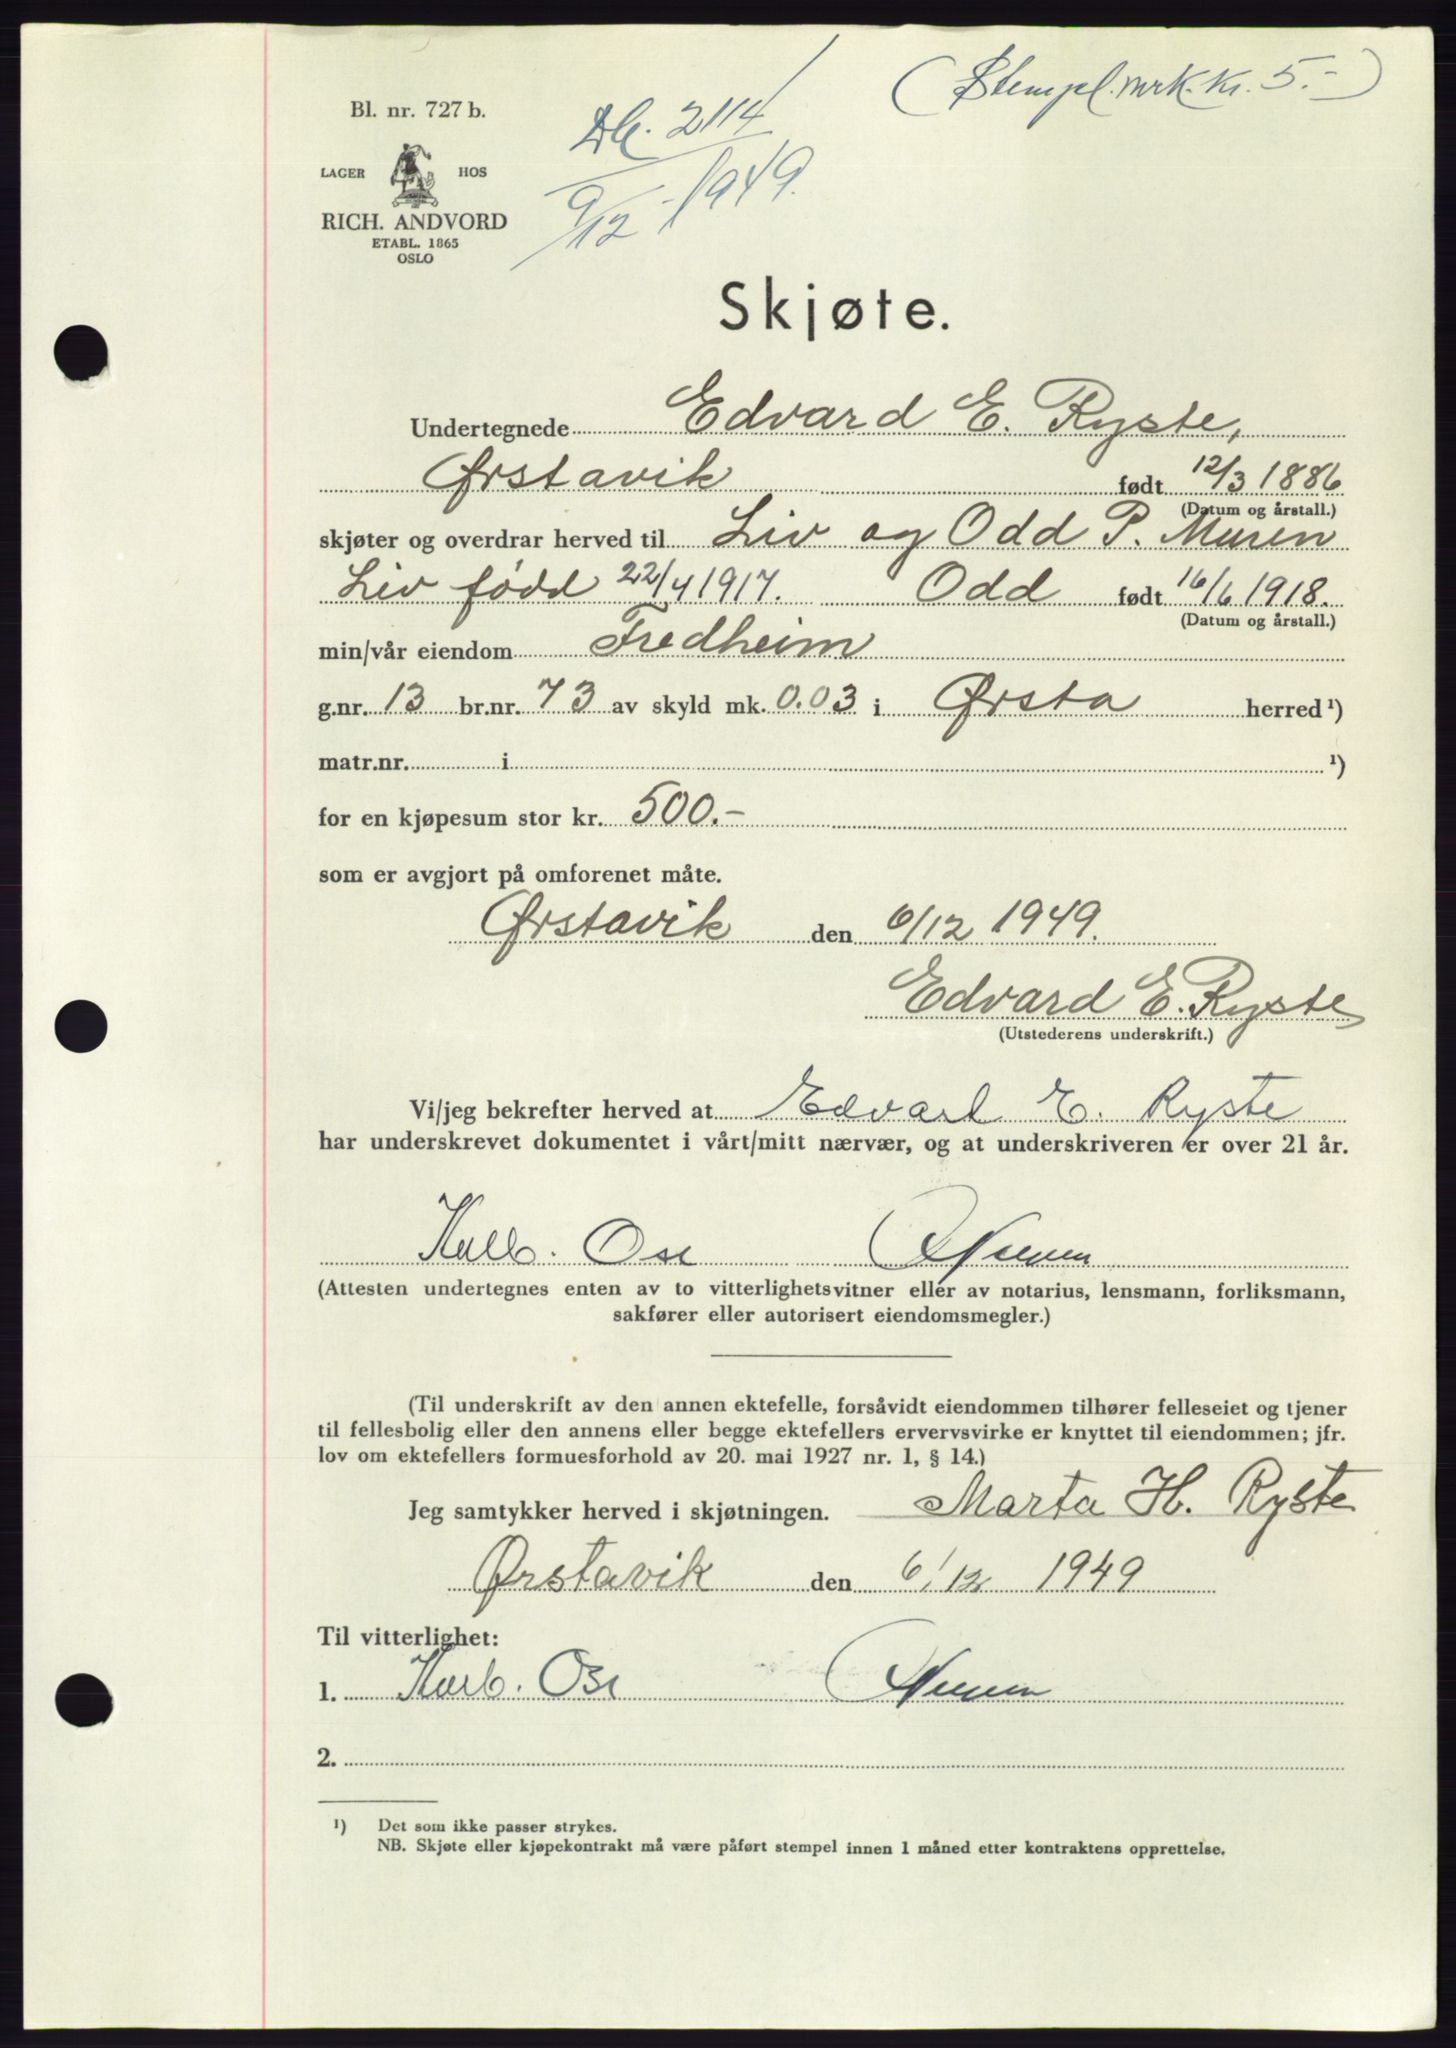 (Stempl.mrk. kr. 5.-)
Bl. nr. 727 b.
Db. 2114/
9/12 - 1949.
LAGER HOS
RICH. ANDVORD
ETABL. 1865
OSLO
Skjøte.
Undertegnede Edvard E. Ryste,
Ørstavik født 12/3 1886
(Datum og årstall.)
skjøter og overdrar herved til Liv og Odd P. Muren
Liv fødd 22/4 1917. Odd født 16/6 1918.
(Datum og årstall.)
min/vår eiendom Fredheim
g.nr. 13 br.nr. 73 av skyld mk. 0.03 i Ørsta herred ¹)
matr.nr. i ¹)
for en kjøpesum stor kr. 500.-
som er avgjort på omforenet måte.
Ørstavik den 6/12 1949.
Edvard E. Ryste
(Utstederens underskrift.)
Vi/jeg bekrefter herved at Edvard E. Ryste
har underskrevet dokumentet i vårt/mitt nærvær, og at underskriveren er over 21 år.
Ose
(Attesten undertegnes enten av to vitterlighetsvitner eller av notarius, lensmann, forliksmann,
sakfører eller autorisert eiendomsmegler.)
(Til underskrift av den annen ektefelle, forsåvidt eiendommen tilhører felleseiet og tjener
til fellesbolig eller den annens eller begge ektefellers ervervsvirke er knyttet til eiendommen; jfr.
lov om ektefellers formuesforhold av 20. mai 1927 nr. 1, § 14.)
Jeg samtykker herved i skjøtningen. Marta H. Ryste
Ørstavik den 6/12 1949
Til vitterlighet:
1. Ose
2.
¹) Det som ikke passer strykes.
NB. Skjøte eller kjøpekontrakt må være påført stempel innen 1 måned etter kontraktens opprettelse.